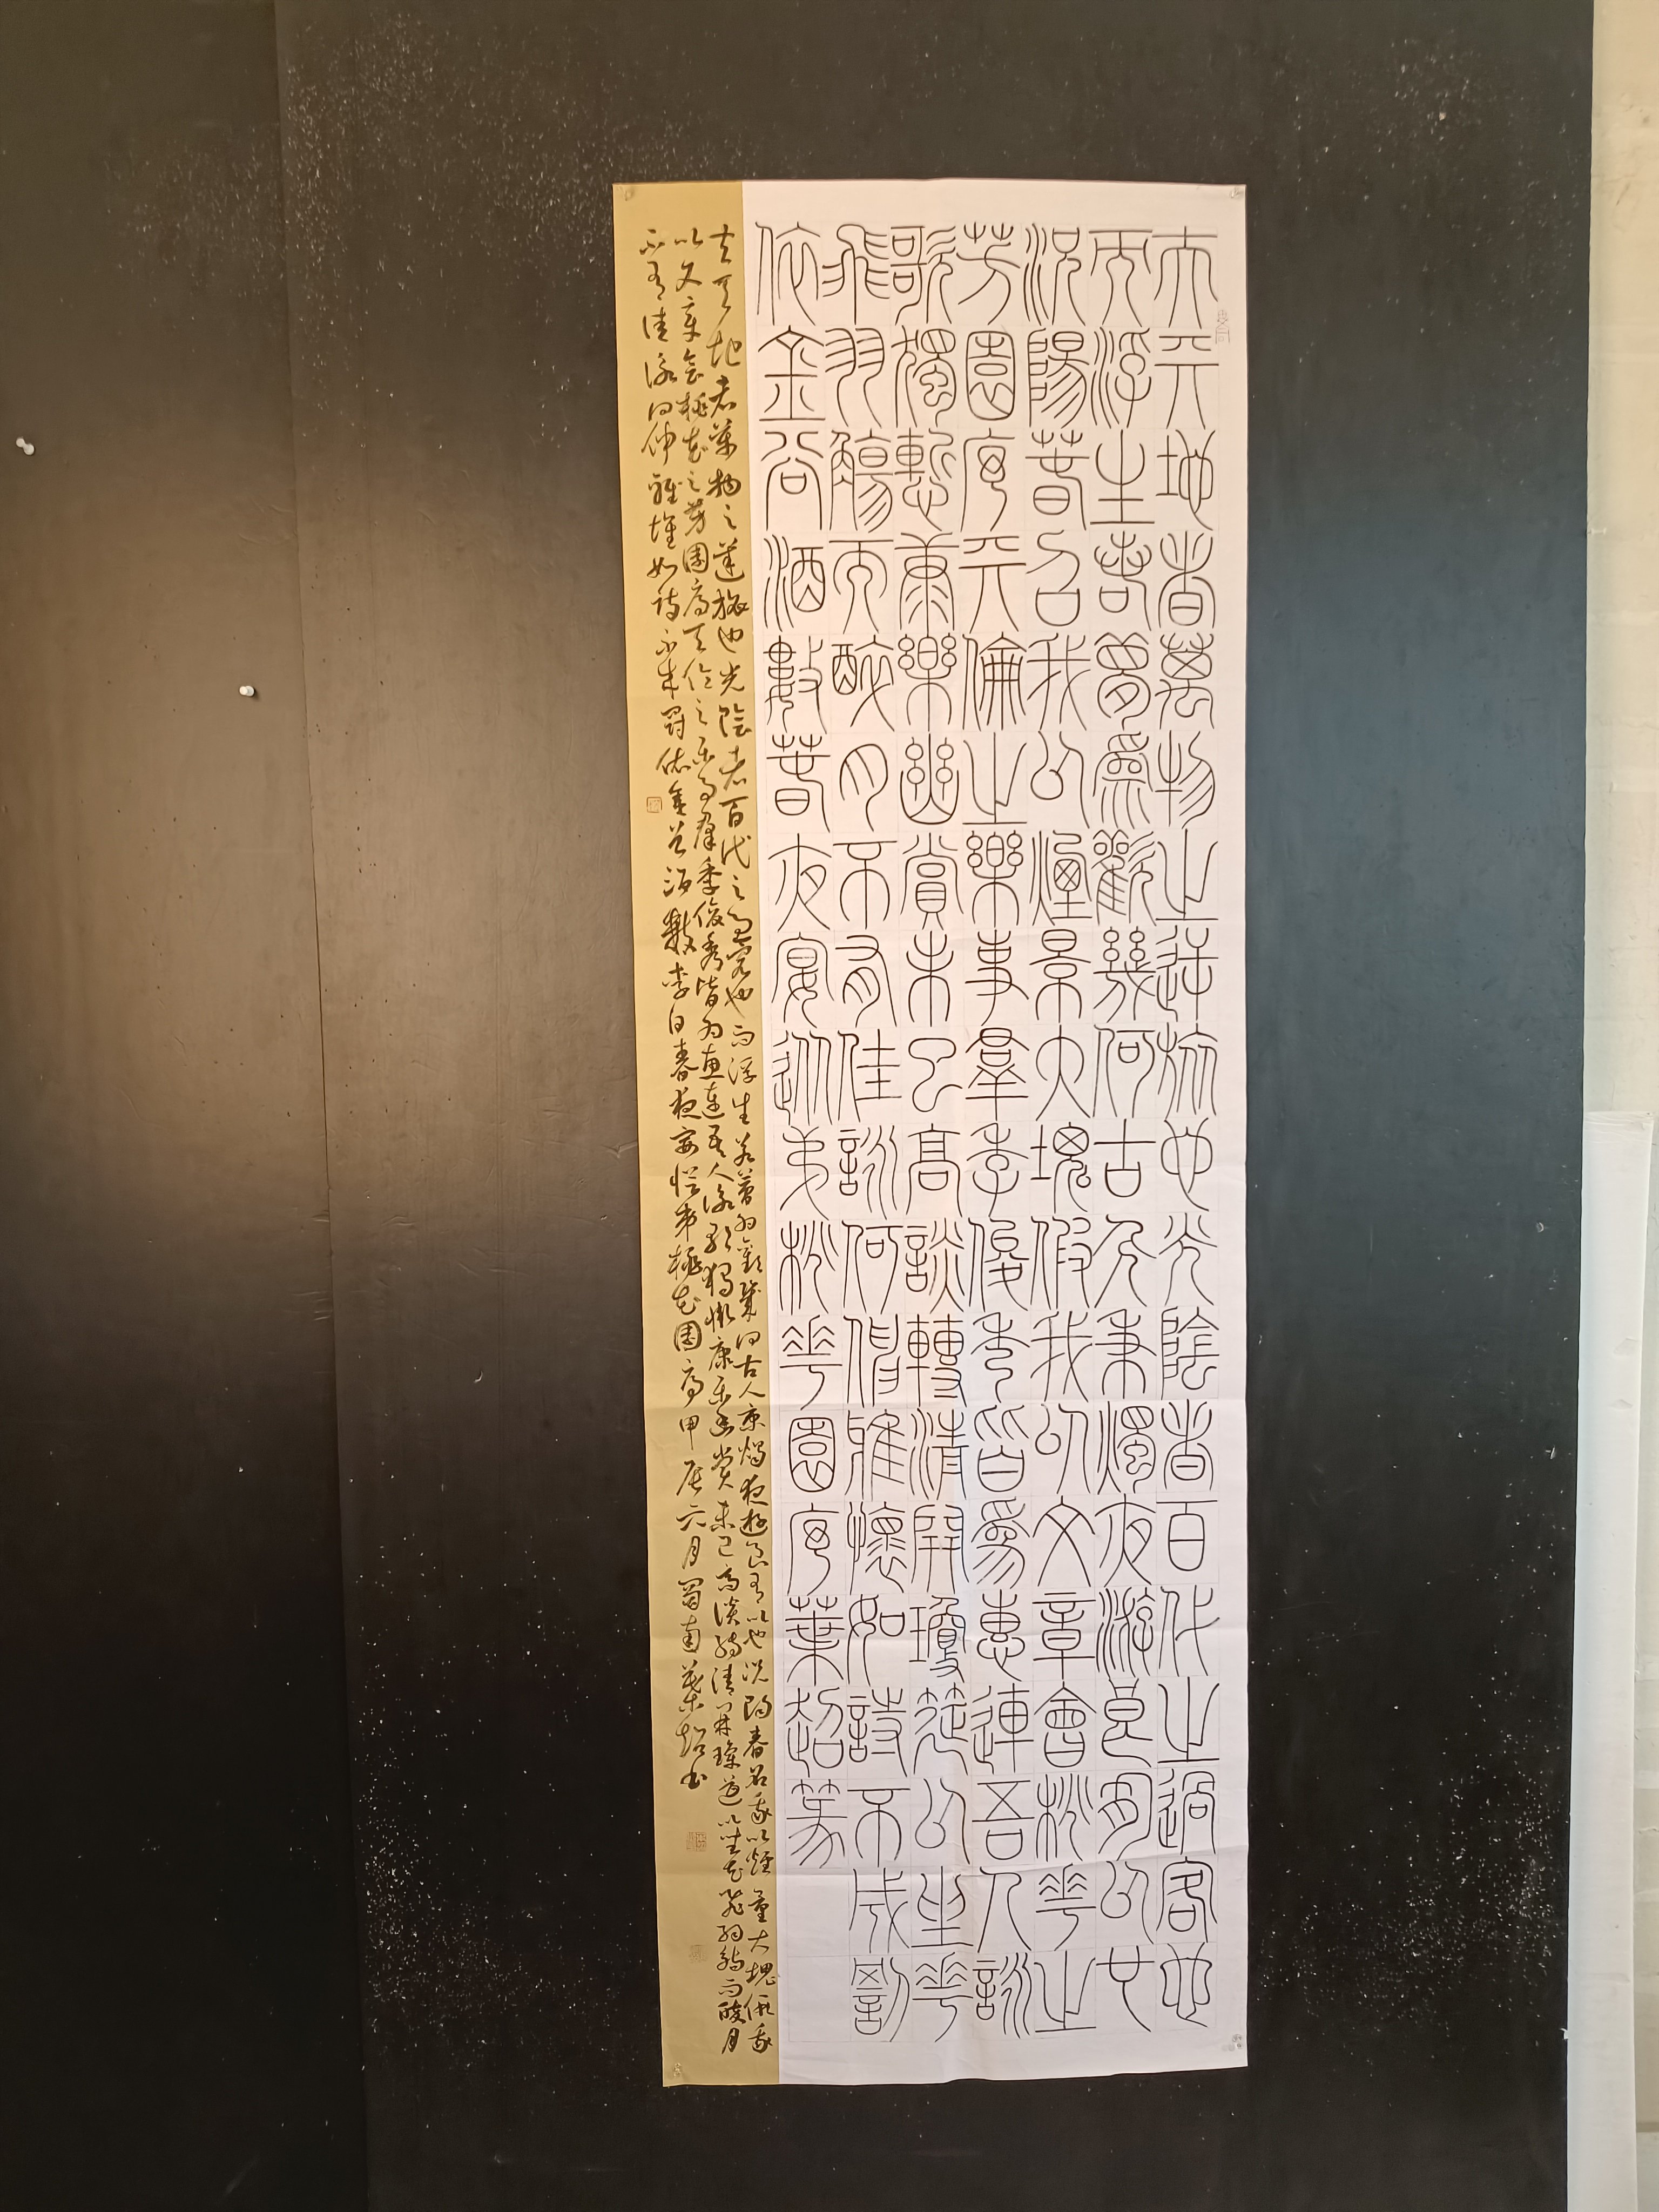 夫天地者萬物之逆旅也光陰者百代之過客也
而浮生若夢爲歡幾何古人秉燭夜游良有以也
況陽春召我以煙景大塊假我以文章會桃花之
芳園序天倫之樂事羣季俊秀皆爲惠連吾人詠
歌獨慙康樂幽賞未已高談轉清開瓊筵以坐花
飛羽觴而醉月不有佳詠何伸雅懷如詩不成罰
依金谷酒數春夜宴從弟桃花園序葉超篆
夫天地者萬物之逆旅也光陰者百代之過客也而浮生若夢為歡幾何古人秉燭夜遊良有以也況陽春召我以煙景大塊假我
以文章會桃花之芳園序天倫之樂事群季俊秀皆為惠連吾人詠歌獨慚康樂幽賞未已高談轉清開瓊筵以坐花飛羽觴而醉月
不有佳詠何伸雅懷如詩不成罰依金谷酒數李白春夜宴從弟桃花園序甲辰六月蜀南葉超書